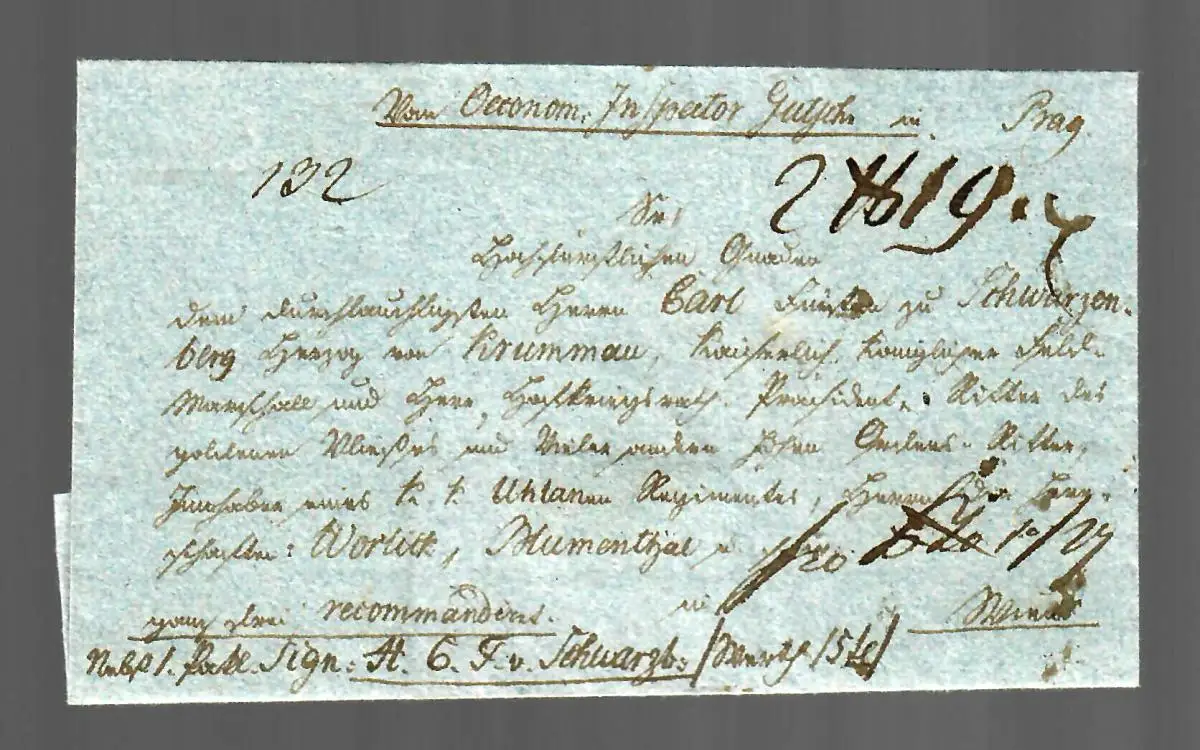 Vom Oeconom: Inspector Gutsch in Prag
132
2 ℔ 19
Sr
Hochfürstlichen Gnaden
dem durchlauchtigsten Herrn Carl Fürsten zu Schwarzen-
berg Herzog von Krummau, Kaiserlich Königlicher Feld-
Marschall und Herr Hofkriegsrath Präsident, Ritter des
goldenen Vließes und Vieler andern hohen Ordens-Ritter,
Innhaber eines k k Uhlanen Regimentes, Herrn der Herr-
schaften: Worlick, Blumenthal
ganz frei recommandirt. in Wien
Nebst 1. Pakl. Sign: H. C. F. v. Schwarzb: /Werth 15